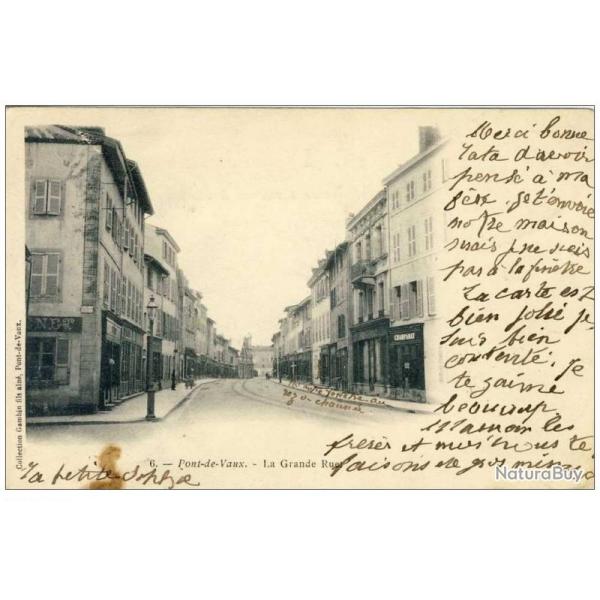 Merci bonne
Tata d'avoir
pensé à ma
fête. je t'envoie
notre maison
mais je ne suis
pas à la fenêtre
La carte est
bien jolie je
suis bien
contente. Je
te t'aime
beaucoup
Maman les
frères et moi nous te
faisons de gros mimis
NET
CHARNAY
notre fenêtre au
rez-d-chaussée
Collection Gambin fils aîné, Pont-de-Vaux.
6. — Pont-de-Vaux. - La Grande Rue
La petite Sophie
NaturaBuy